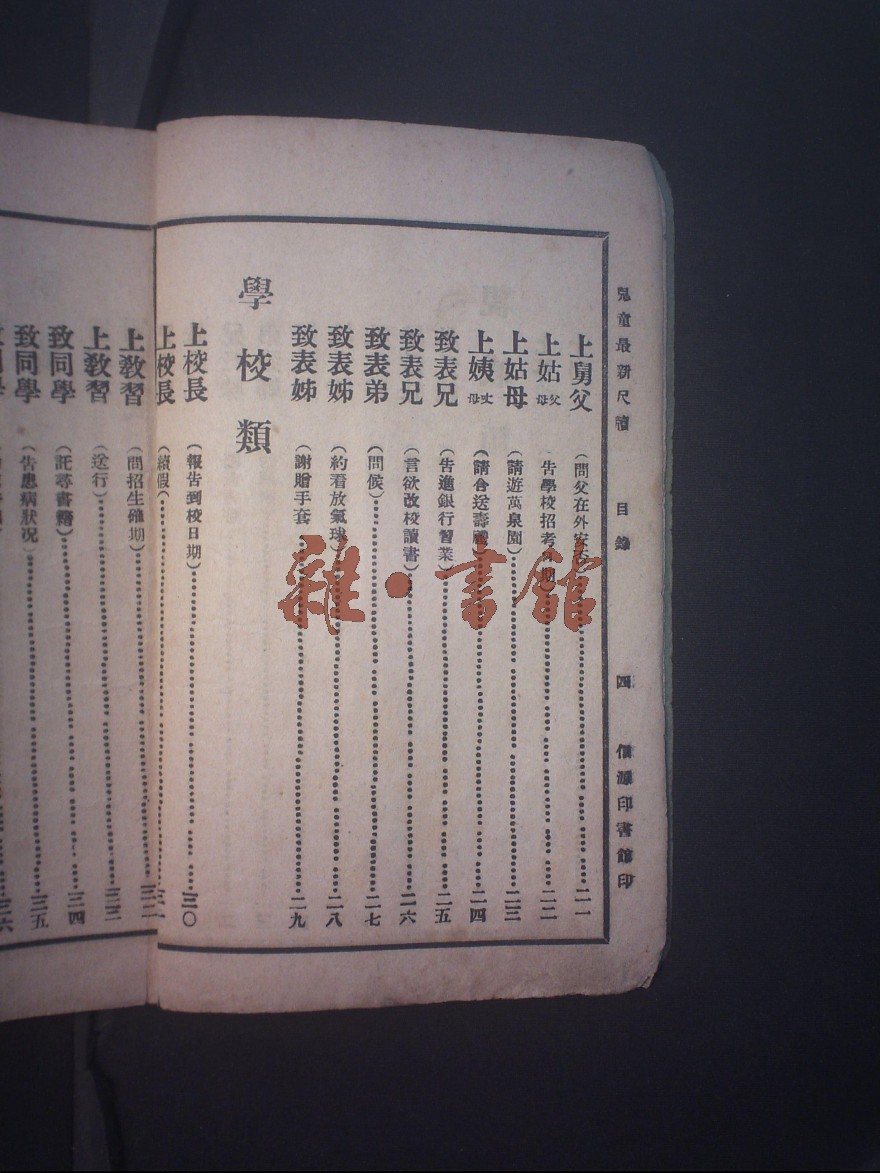 兒童最新尺牘 目錄 四 信源印書館印
上舅父（問父在外安否）二一
上姑父母 告學校招考 期 二二
上姑母（請遊萬泉園）二三
上姨丈母（請 送壽禮）二四
致表兄（告進銀行習業）二五
致表兄（言欲改校讀書）二六
致表弟（問候）二七
致表姊（約看放氣球）二八
致表姊（謝贈手套）二九
學校類
上校長（報告到校日期）三〇
上校長（續假）三一
上教習（問招生確期）三二
上教習（送行）三三
致同學（託尋書籍）三四
致同學（告患病狀況）三五
三六
雜·書館